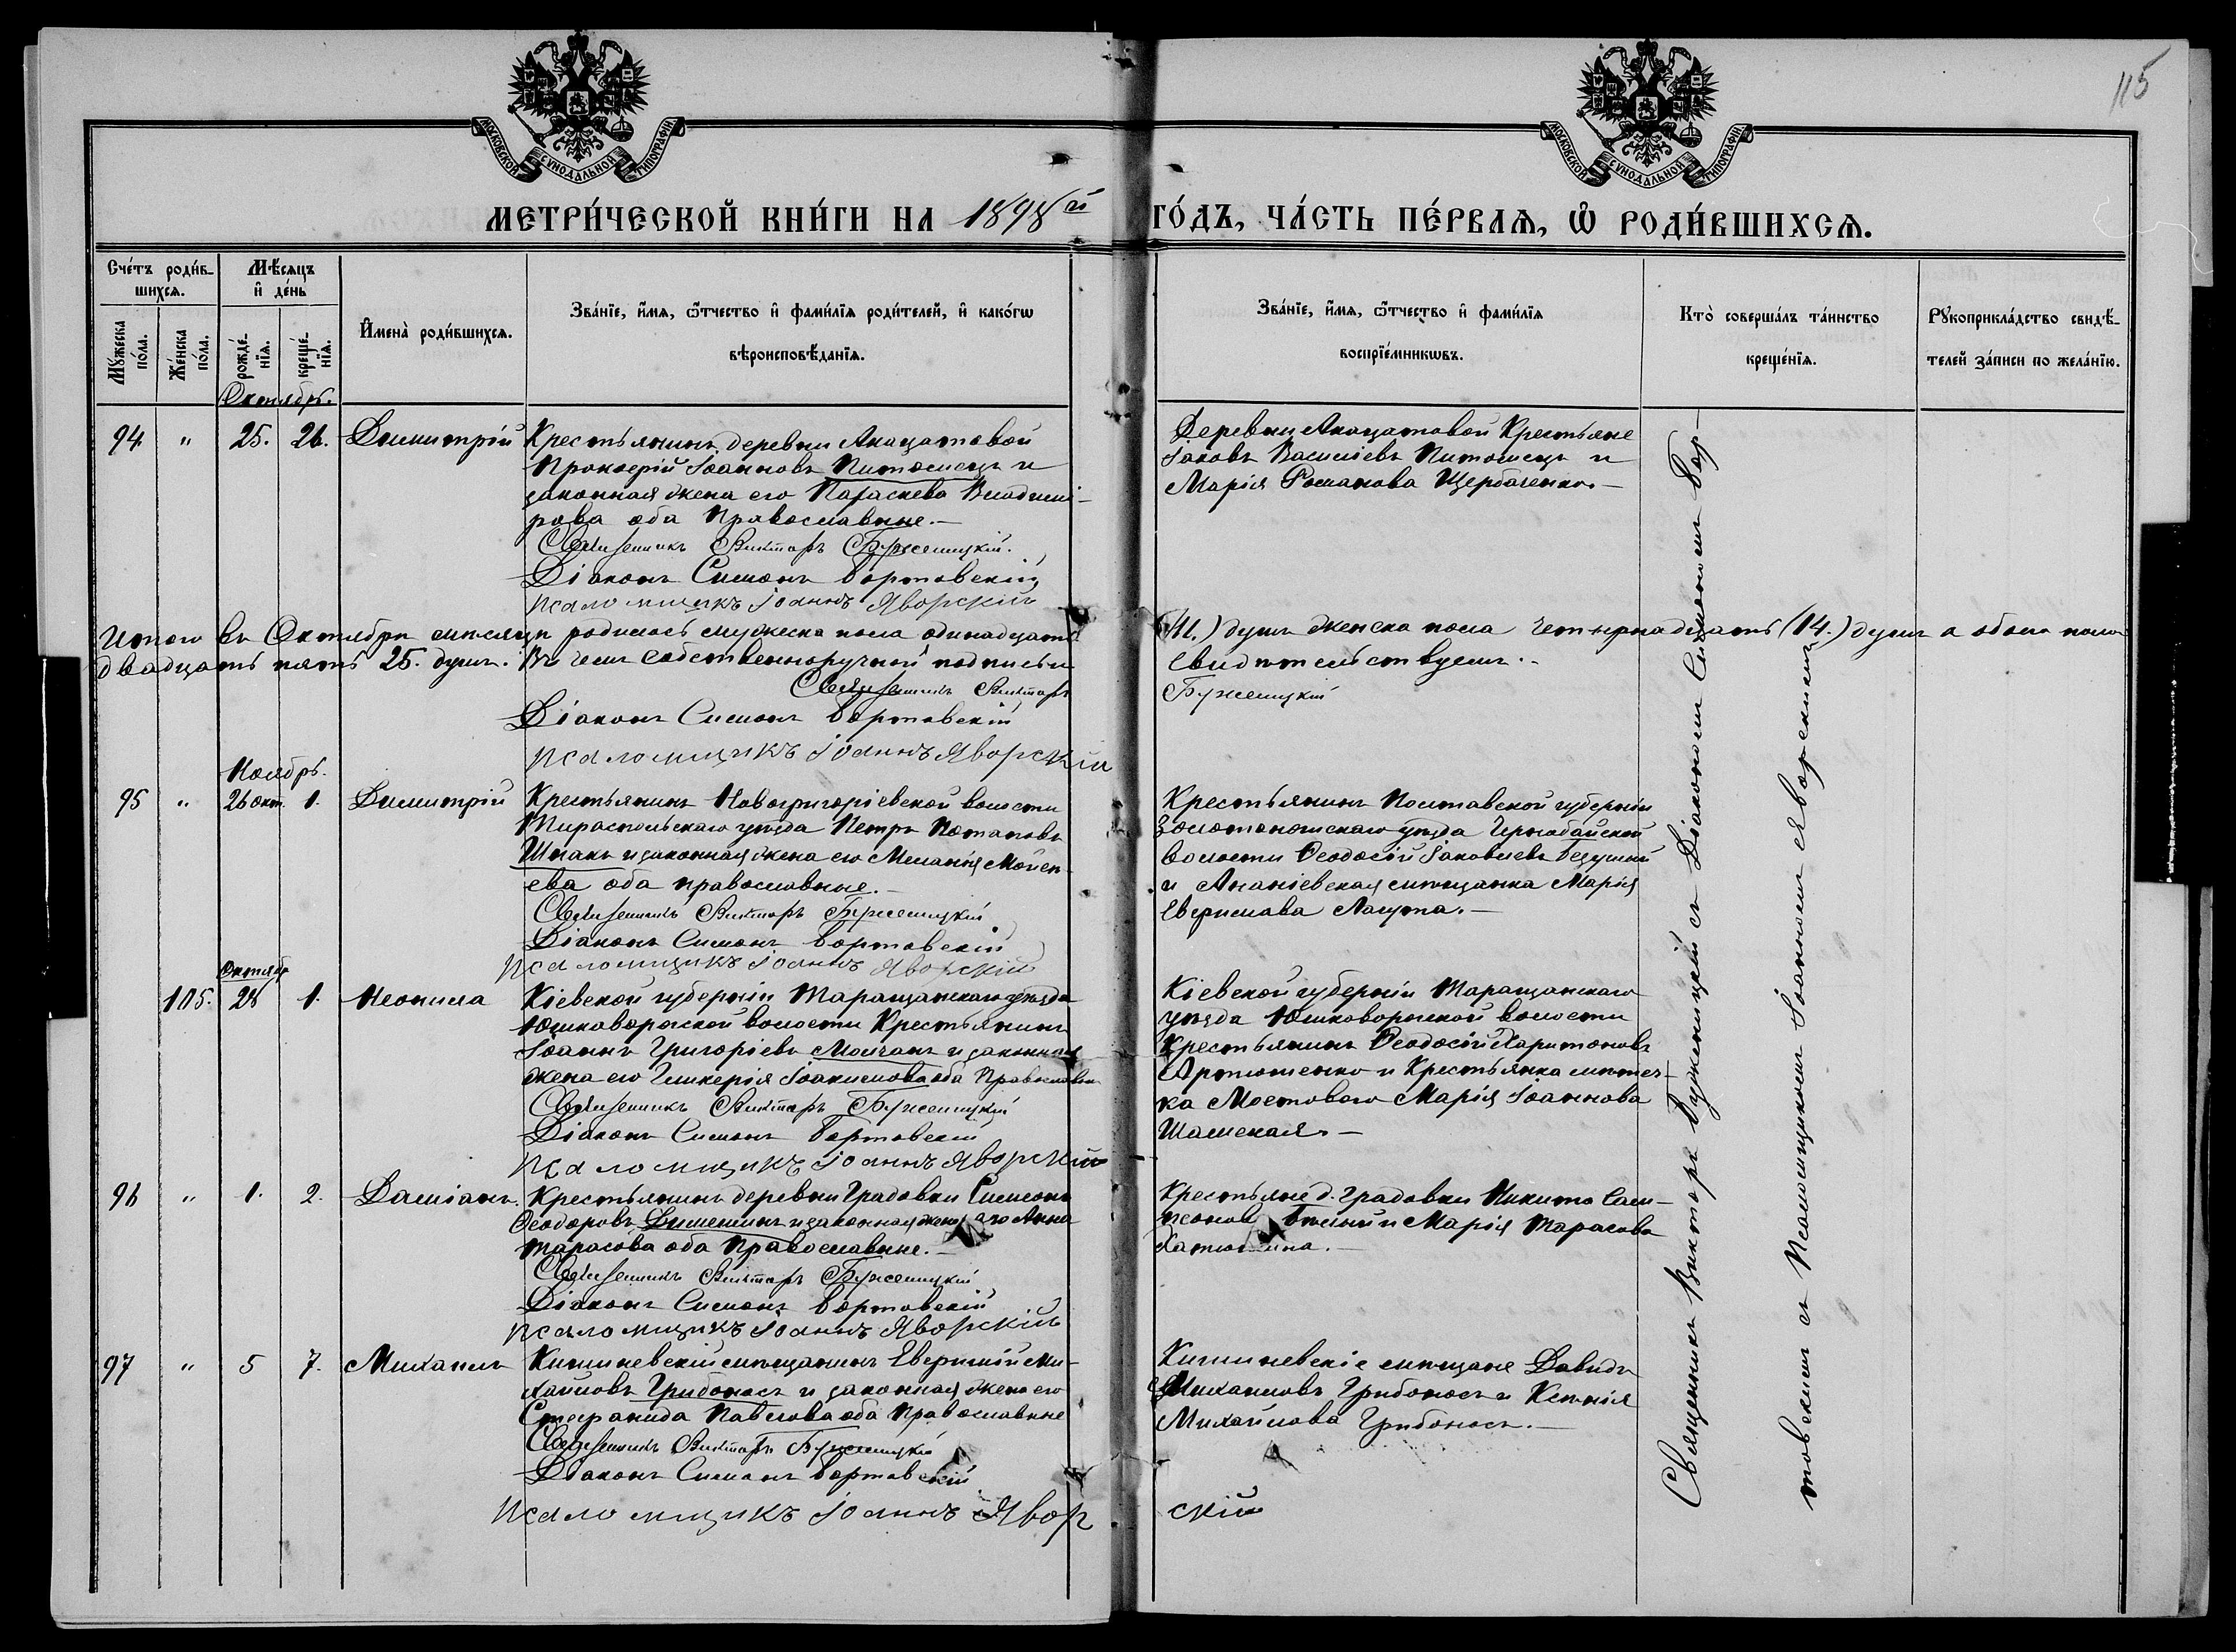 115
МОСКОВСКОЙ СѴНОДАЛЬНОЙ ТИПОГРАФІИ
МОСКОВСКОЙ СѴНОДАЛЬНОЙ ТИПОГРАФІИ
МЕТРИ́ЧЕСКОЙ КНИ́ГИ НА 1898й ГО́ДЪ, ЧА́СТЬ ПЕ́РВАѦ, Ѽ РОДИ́ВШИХСѦ.
Сче́тъ роди́вшихсѧ.
Му́жеска по́ла.
Же́нска по́ла.
Мѣ́сѧцъ и҆ де́нь
рожде́нїѧ.
креще́нїѧ.
И҆мена̀ роди́вшихсѧ.
Зва́нїе, и҆́мѧ, ѻ҆́тчество и҆ фами́лїѧ роди́телей, и҆ како́гѡ
вѣроисповѣ́данїѧ.
Зва́нїе, и҆́мѧ, ѻ҆́тчество и҆ фами́лїѧ
воспрїе́мникѡвъ.
Кто̀ соверша́лъ та́инство
креще́нїѧ.
Рꙋкоприкла́дство свидѣ́телей за́писи по жела́нїю.
Октябрь.
94 " 25. 26. Димитрій
Крестьянинъ деревни Акацатовой
Прокофій Іоанновъ Питомецъ и
законная жена его Параскева Владимі-
рова оба Православные.—
Священникъ Викторъ Буженицкій.
Діаконъ Симонъ Бортовскій
Псаломщикъ Іоаннъ Яворскій
Деревни Акацатовой Крестьяне
Іаковъ Василіевъ Питомецъ и
Марія Романова Щербаченко.—
Итого въ Октябрѣ мѣсяцѣ родилось мужеска пола одинадцать (11.) душъ женска пола четырнадцать (14.) душъ а обоего пола
двадцать пять 25. душъ. Въ чемъ собственноручной подписью свидѣтельствуемъ.
Священникъ Викторъ Буженицкій
Діаконъ Симонъ Бортовскій
Псаломщикъ Іоаннъ Яворскій
Ноябрь.
95 " 26 окт. 1. Димитрій
Крестьянинъ Новогригоріевской волости
Тираспольскаго уѣзда Петръ Потаповъ
Шпакъ и законная жена его Меланія Моисе-
ева оба православные.—
Священникъ Викторъ Буженицкій
Діаконъ Симонъ Бортовскій
Псаломщикъ Іоаннъ Яворскій
Крестьянинъ Полтавской губерніи
Золотоношскаго уѣзда Чернобайской
волости Ѳеодосій Іаковлевъ
и Ананіевская мѣщанка Марія
Лагута.—
Октябрь
105. 28 1. Неонила
Кіевской губерніи Таращанскаго уѣзда
Юшковорожской волости Крестьянинъ
Іоаннъ Григоріевъ Молчанъ и законная
жена его Гликерія Іоакимова оба Православные
Священникъ Викторъ Буженицкій
Діаконъ Симонъ Бортовскій
Псаломщикъ Іоаннъ Яворскій
Кіевской губерніи Таращанскаго
уѣзда Юшковорожской волости
Крестьянинъ Ѳеодосій Харитоновъ
Артюшенко и Крестьянка мѣстеч-
ка Мостового Марія Іоаннова
96 " 1. 2. Даміанъ.
Крестьянинъ деревни Градовки Симеонъ
Ѳеодоровъ и законная жена его Анна
Тарасова оба Православные.—
Священникъ Викторъ Буженицкій
Діаконъ Симонъ Бортовскій
Псаломщикъ Іоаннъ Яворскій
Крестьяне д. Градовки Никита Сам-
псоновъ и Марія Тарасова
97 " 5 7. Михаилъ
Кишиневскій мѣщанинъ Ми-
хайловъ Грибоносъ и законная жена его
Стефанида Павлова оба Православные
Священникъ Викторъ Буженицкій
Діаконъ Симонъ Бортовскій
Псаломщикъ Іоаннъ Яворскій
Кишиневскіе мѣщане Давидъ
Михаиловъ Грибоносъ и Ксенія
Михайлова Грибоносъ.—
Священникъ Викторъ Буженицкій съ Діакономъ Симономъ Бор-
товскимъ и Псаломщикомъ Іоанномъ Яворскимъ